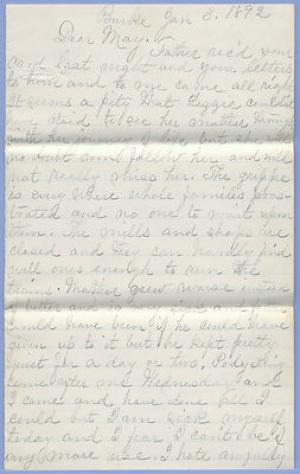 Burke Jan 8. 1892
Dear May.
Father rec'd your
card last night and your letters
to him and to me came all right
It seems a pity that Lizzie couldn't
have staid to see her mother through
with her journey of life but
no doubt soon follow her and will
not really miss her. The grippe
is every where whole families pros-
trated and no one to wait upon
them. The mills and shops are
closed and they can hardly find
well ones enough to run the
trains. Mother grew worse instead
of better and
would have been if he could have
given up to it but he kept pretty
quiet for a day or two.
came after me Wednesday and
I came and have done all I
could but I am sick myself
today and I fear I can't be of
any more use. I hate